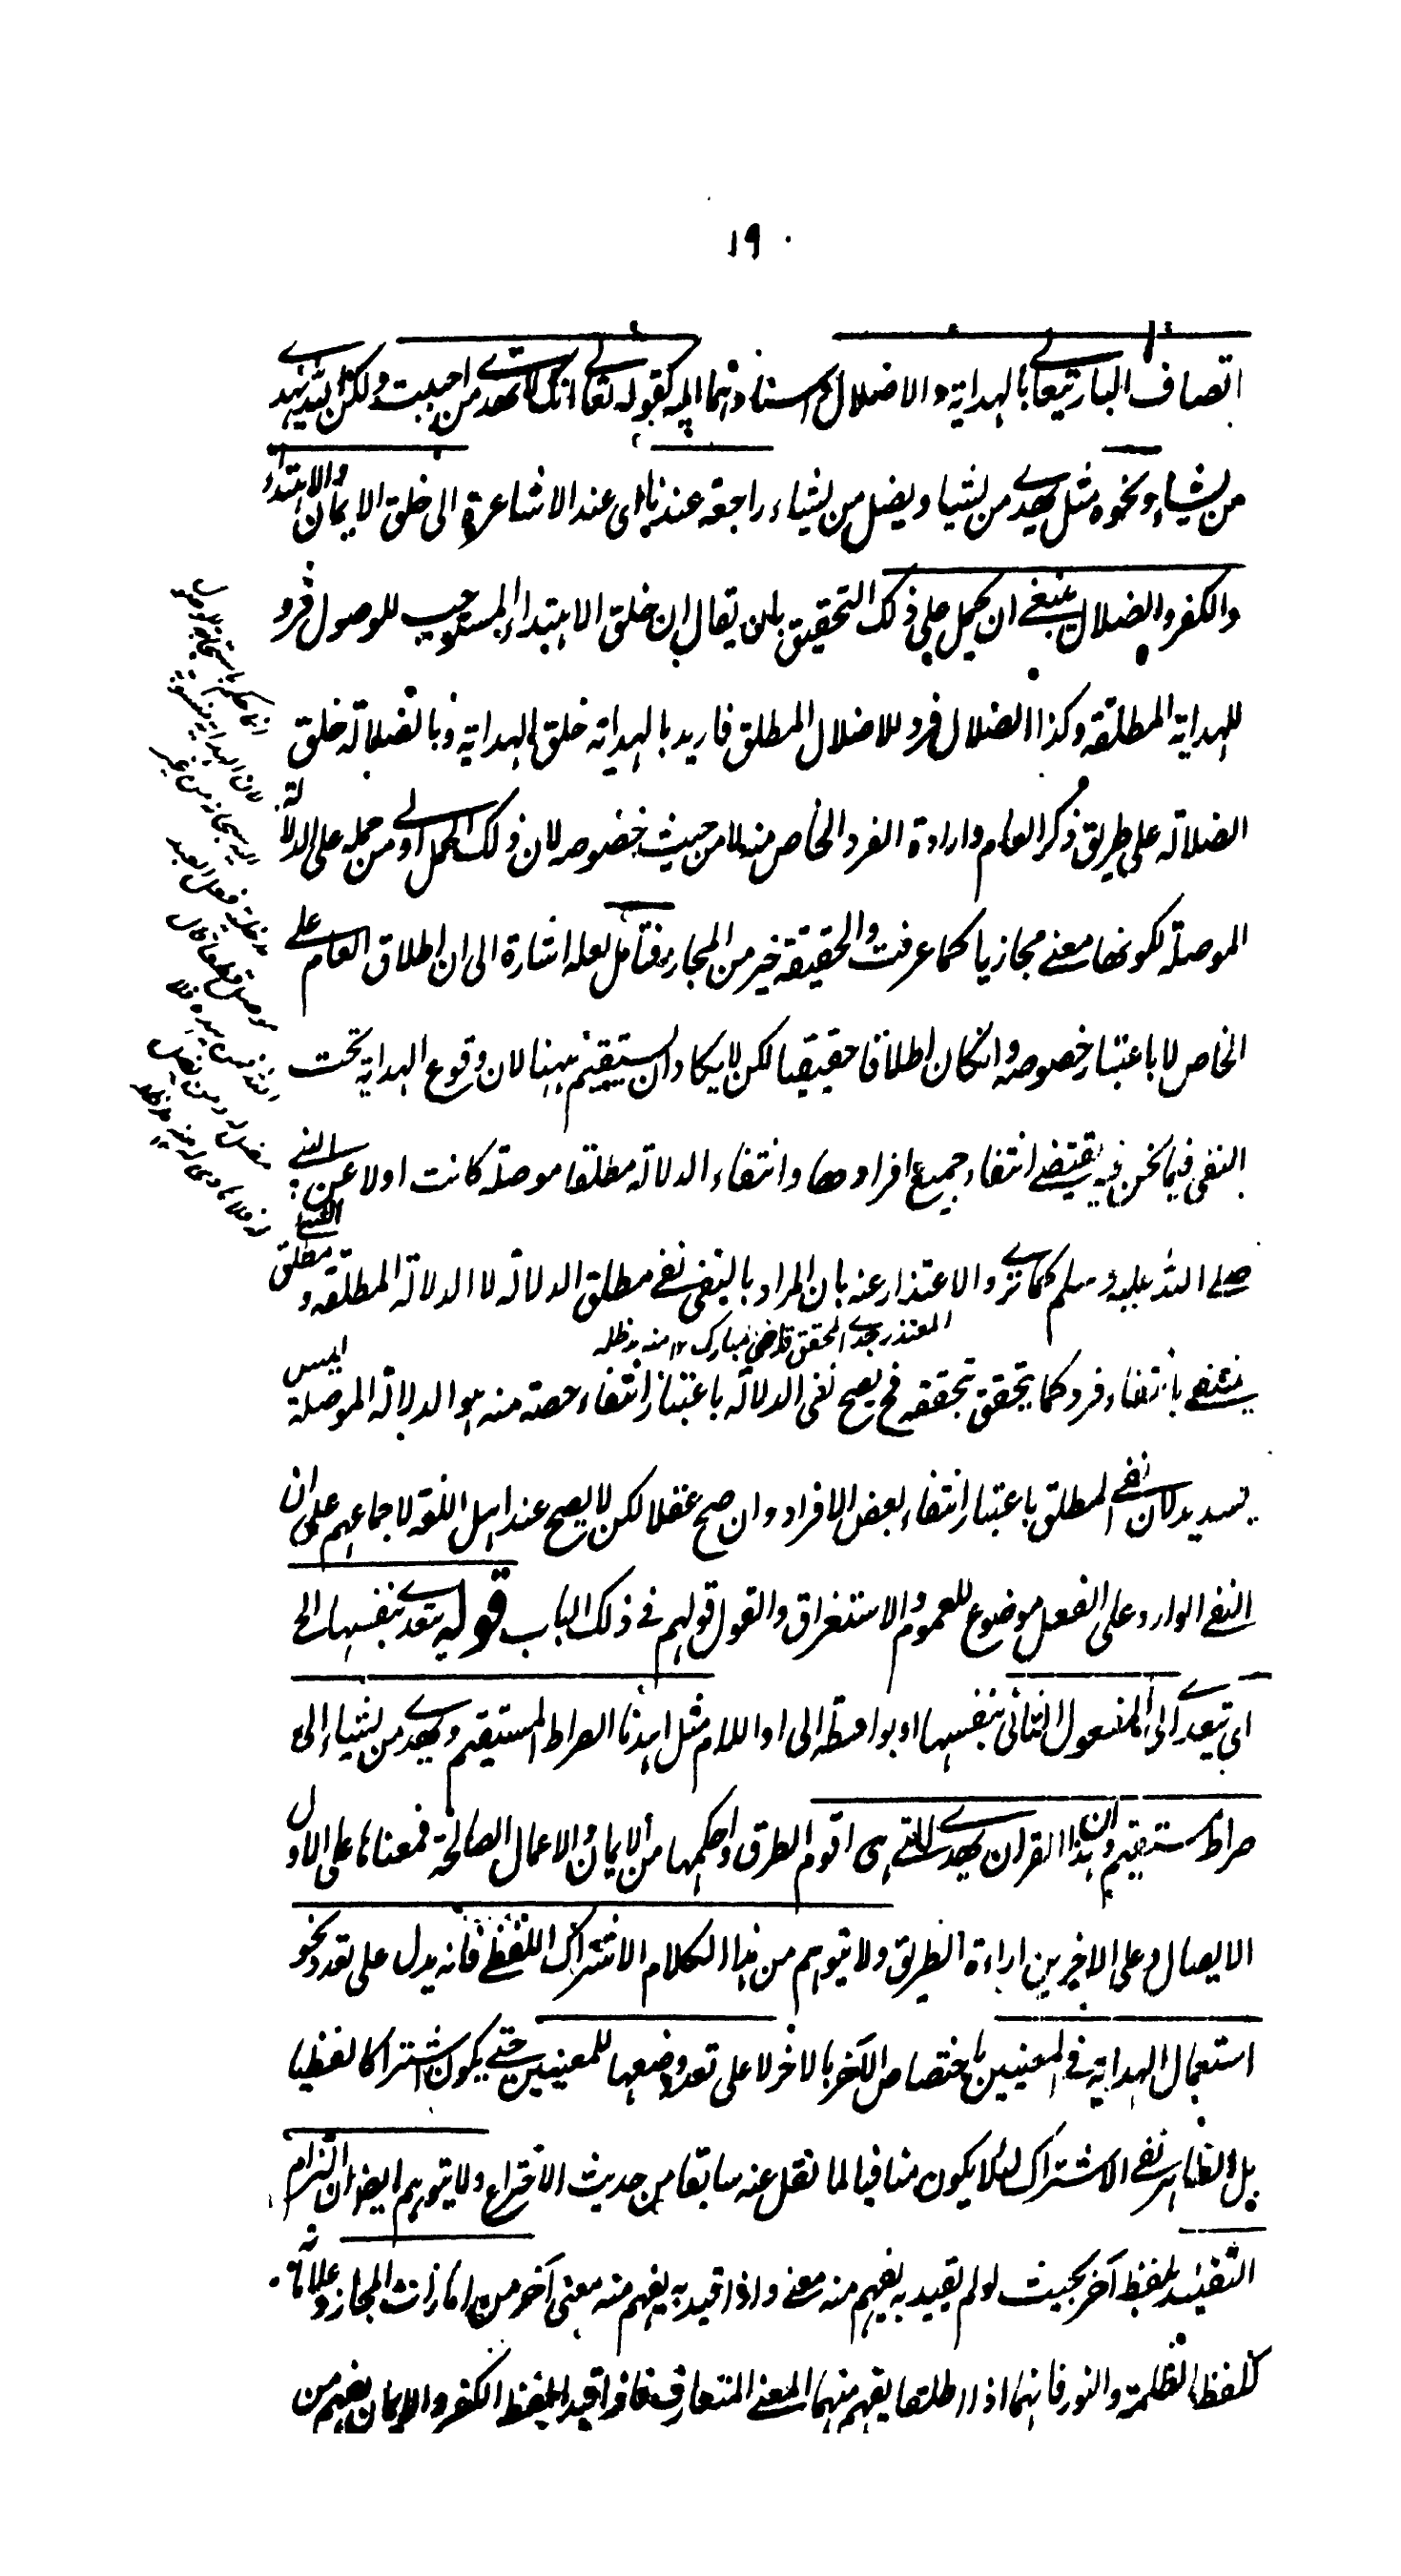 ١٩
اتصاف الباری تعالے بالہدایۃ والاضلال واسنادہما الیہ کقولہ تعالے انک لا تھدے من احببت ولکن اللہ یہدے
من یشاء ونحوہ مثل یھدے من یشاء ویضل من یشاء راجعۃ عندنا ای عند الاشاعرۃ الی خلق الایمان والاہتداء
والکفر والضلال ینبغے ان یحمل علی ذلک التحقیق بان یقال ان خلق الاہتداء المستوجب للوصول فرد
للہدایۃ المطلقۃ وکذا الضلال فرد للاضلال المطلق فارید بالہدایۃ خلق الہدایۃ وبالضلالۃ خلق
الضلالۃ علی طریق ذکر العام وارادۃ الفرد الخاص منہ لا من حیث خصوصہ لان ذلک الحمل اولے من حملہ علی الدلالۃ
الموصلۃ لکونھا معنے مجازیا کما عرفت والحقیقۃ خیر من المجاز فتامل لعلہ اشارۃ الی ان اطلاق العام علے
الخاص لا باعتبار خصوصہ وانکان اطلاقا حقیقیا لکن لا یکاد ان یستقیم ہہنا لان وقوع الہدایۃ تحت
النفی فیما نحن فیہ یقتضے انتفاء جمیع افرادھا وانتفاء الدلالۃ مطلقا موصلۃ کانت اولا عن النبے
صلے اللہ علیہ وسلم کما ترے والاعتذار عنہ بان المراد بالنفی نفے مطلق الدلالۃ لا الدلالۃ المطلقۃ و مطلق الشے
المعتذر جدے المحقق قاضی مبارک ۱۲ منہ مدظلہ
ینتفے بانتفاء فرد کما یتحقق بتحققہ فح یصح نفی الدلالۃ باعتبار انتفاء حصتہ منہ ہو الدلالۃ الموصلۃ لیس
بسدید لان نفے المطلق باعتبار انتفاء بعض الافراد وان صح عقلا لکن لا یصح عند اہل اللغۃ لاجماعہم علی ان
النفے الوارد علی الفعل موضوع للعموم والاستغراق والقول قولہم فے ذلک الباب قولہ یتعدے بنفسہا الخ
ای یتعدے الی المفعول الثانی بنفسہا او بواسطۃ الی او اللام مثل اہدنا الصراط المستقیم ویھدے من یشاء الی
صراط مستقیم وان ہذا القران یھدے للتے ہی اقوم الطرق واحکمہا من الایمان والاعمال الصالحۃ فمعناہا علی الاول
الایصال وعلی الاخیرین اراءۃ الطریق ولا یتوہم من ہذا الکلام الاشتراک اللفظے فانہ یدل علی تعدد نحو
استعمال الہدایۃ فے المعنیین باختصاص الآخر بالاخر لا علی تعدد وضعہا للمعنیین حتے یکون اشتراکا لفظیا
بل الظاہر نفے الاشتراک لئلا یکون منافیا لما نقل عنہ سابقا من حدیث الاختراع ولا یتوہم ایضا ان التزام
التقئید بلفظ آخر بحیث لو لم یقید بہ یفہم منہ معنے واذا قید بہ یفہم منہ معنی آخر من امارات المجاز وعلاماتہ
کلفظ الظلمۃ والنور فانہما اذا اطلقا یفہم منہما المعنے المتعارف فاذا قیدا بلفظ الکفر والایمان یفہم من